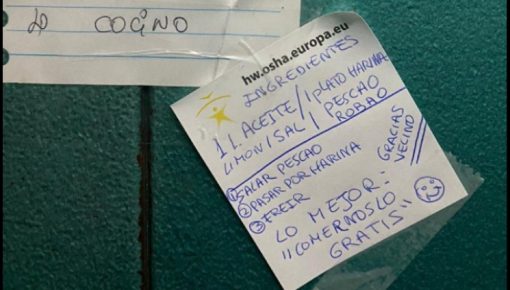 LO COCINO
hw.osha.europa.eu
INGREDIENTES
1 L. ACEITE / 1 PLATO HARINA
LIMON / SAL / 1 PESCAO
ROBAO
① SALAR PESCAO
② PASAR POR HARINA
③ FREIR
GRACIAS
VECINO
LO MEJOR:
¡¡COMERNOSLO
GRATIS"